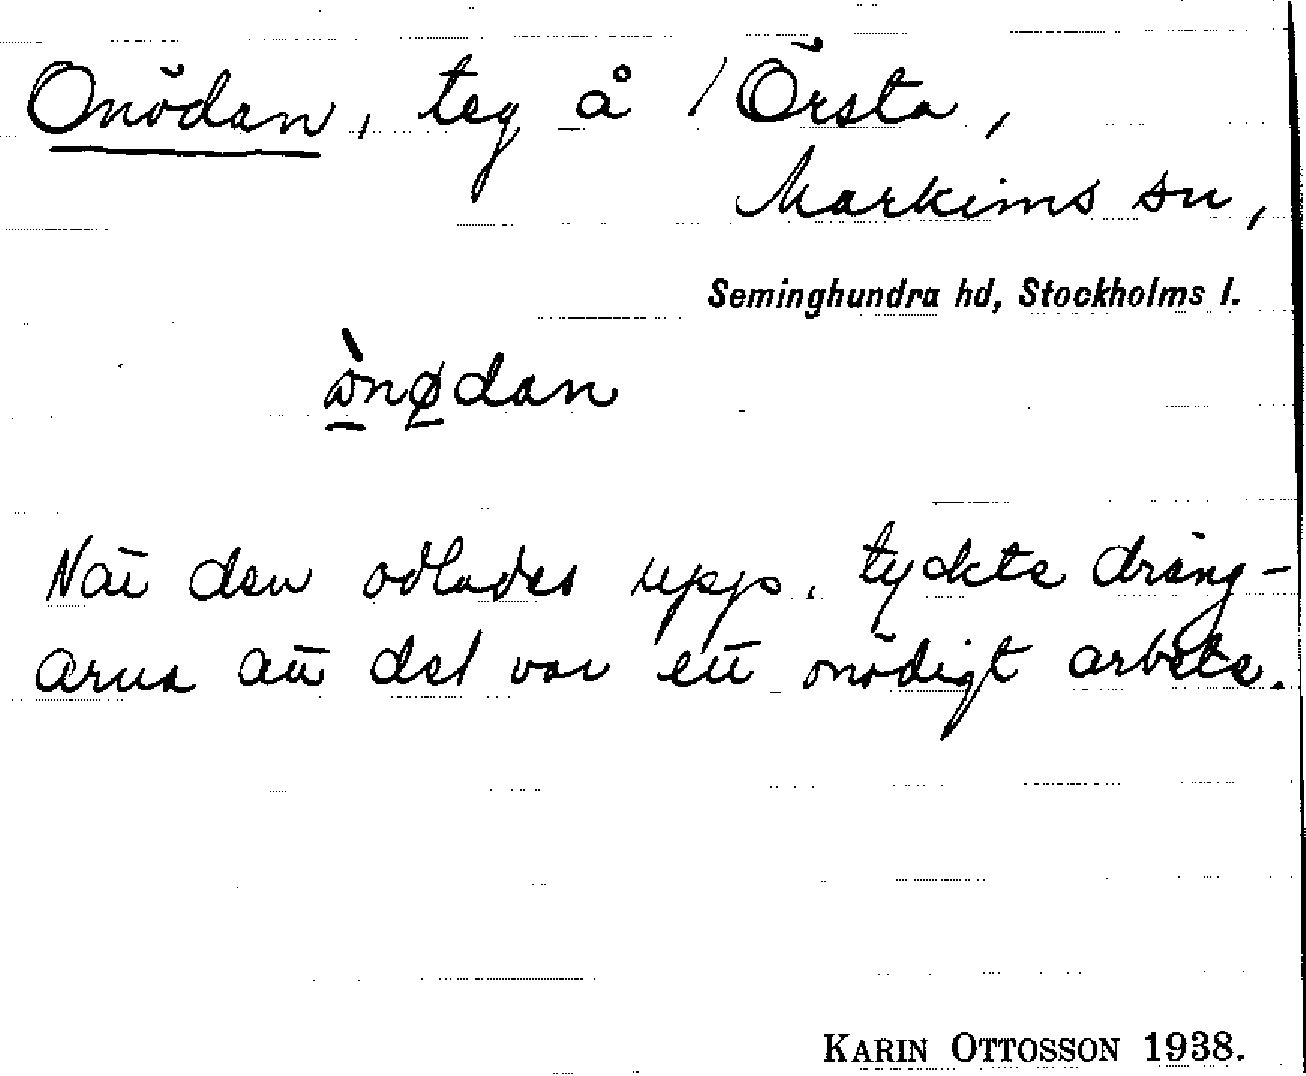 Onödan, teg å / Örsta,
Markims sn,
Seminghundra hd, Stockholms l.
ò̱nø̱dan
När den odlades upp, tyckte dräng-
arna att det var ett onödigt arbete.
KARIN OTTOSSON 1938.